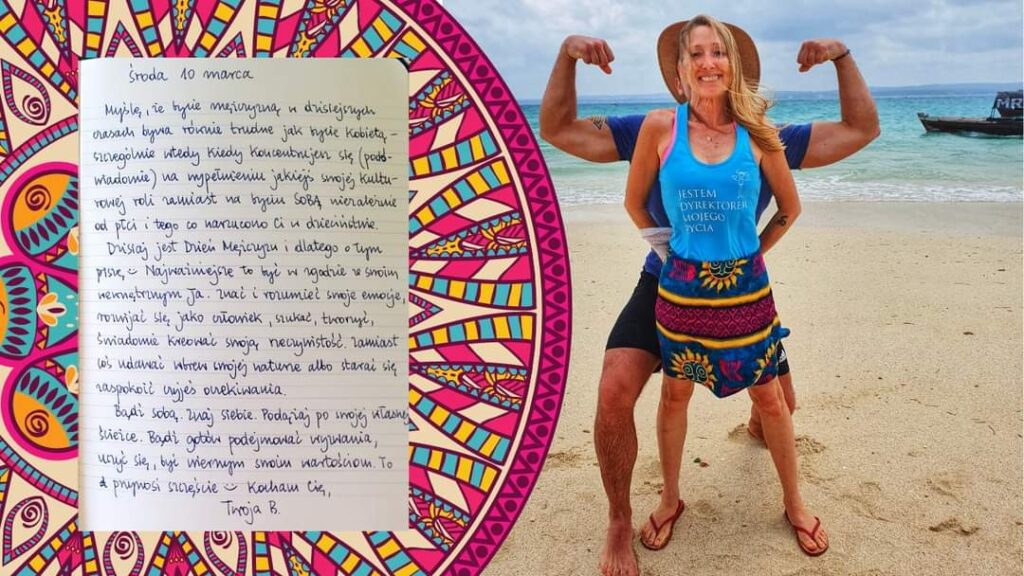 środa 10 marca
Myślę, że bycie mężczyzną w dzisiejszych
czasach bywa równie trudne jak bycie kobietą -
szczególnie wtedy kiedy koncentrujesz się (pod-
wiadomie) na wypełnieniu jakiejś swojej kultu-
rowej roli zamiast na byciu SOBĄ niezależnie
od płci i tego co narzucono Ci w dzieciństwie.
Dzisiaj jest Dzień Mężczyzn i dlatego o tym
piszę. Najważniejsze to być w zgodzie ze swoim
wewnętrznym Ja. Znać i rozumieć swoje emocje,
rozwijać się jako człowiek, szukać, tworzyć,
świadomie kreować swoją rzeczywistość zamiast
coś udawać wbrew swojej naturze albo starać się
zaspokoić czyjeś oczekiwania.
Bądź sobą. Znaj siebie. Podążaj po swojej własnej
ścieżce. Bądź gotów podejmować wyzwania,
uczyć się, być wiernym swoim wartościom. To
przynosi szczęście Kocham Cię,
Twoja B.
JESTEM
DYREKTOREM
MOJEGO
ŻYCIA
MR